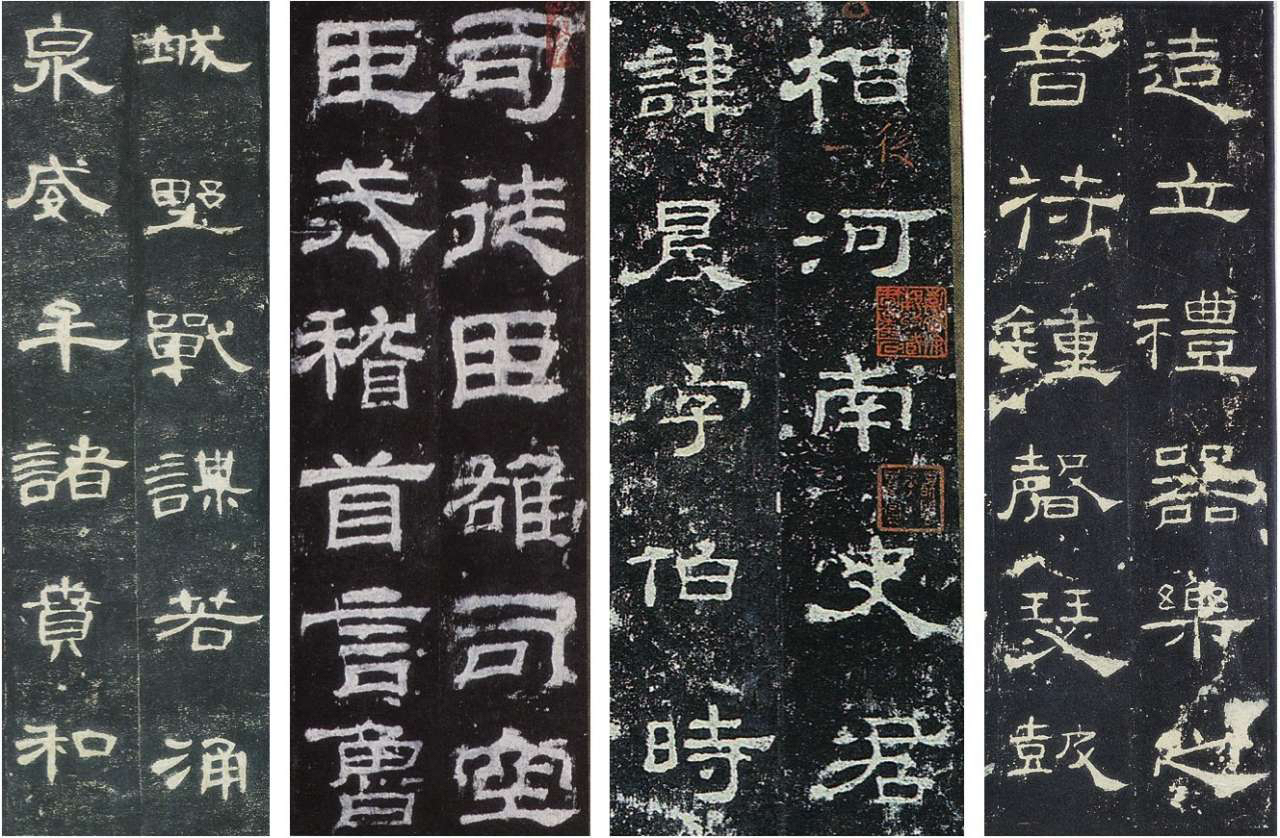 城野戰謀若涌
泉威牟諸賁和
司徒臣雄司空
臣戒稽首言魯
相河南史君
諱晨字伯時
造立禮器樂之
音苻鍾磬瑟鼓